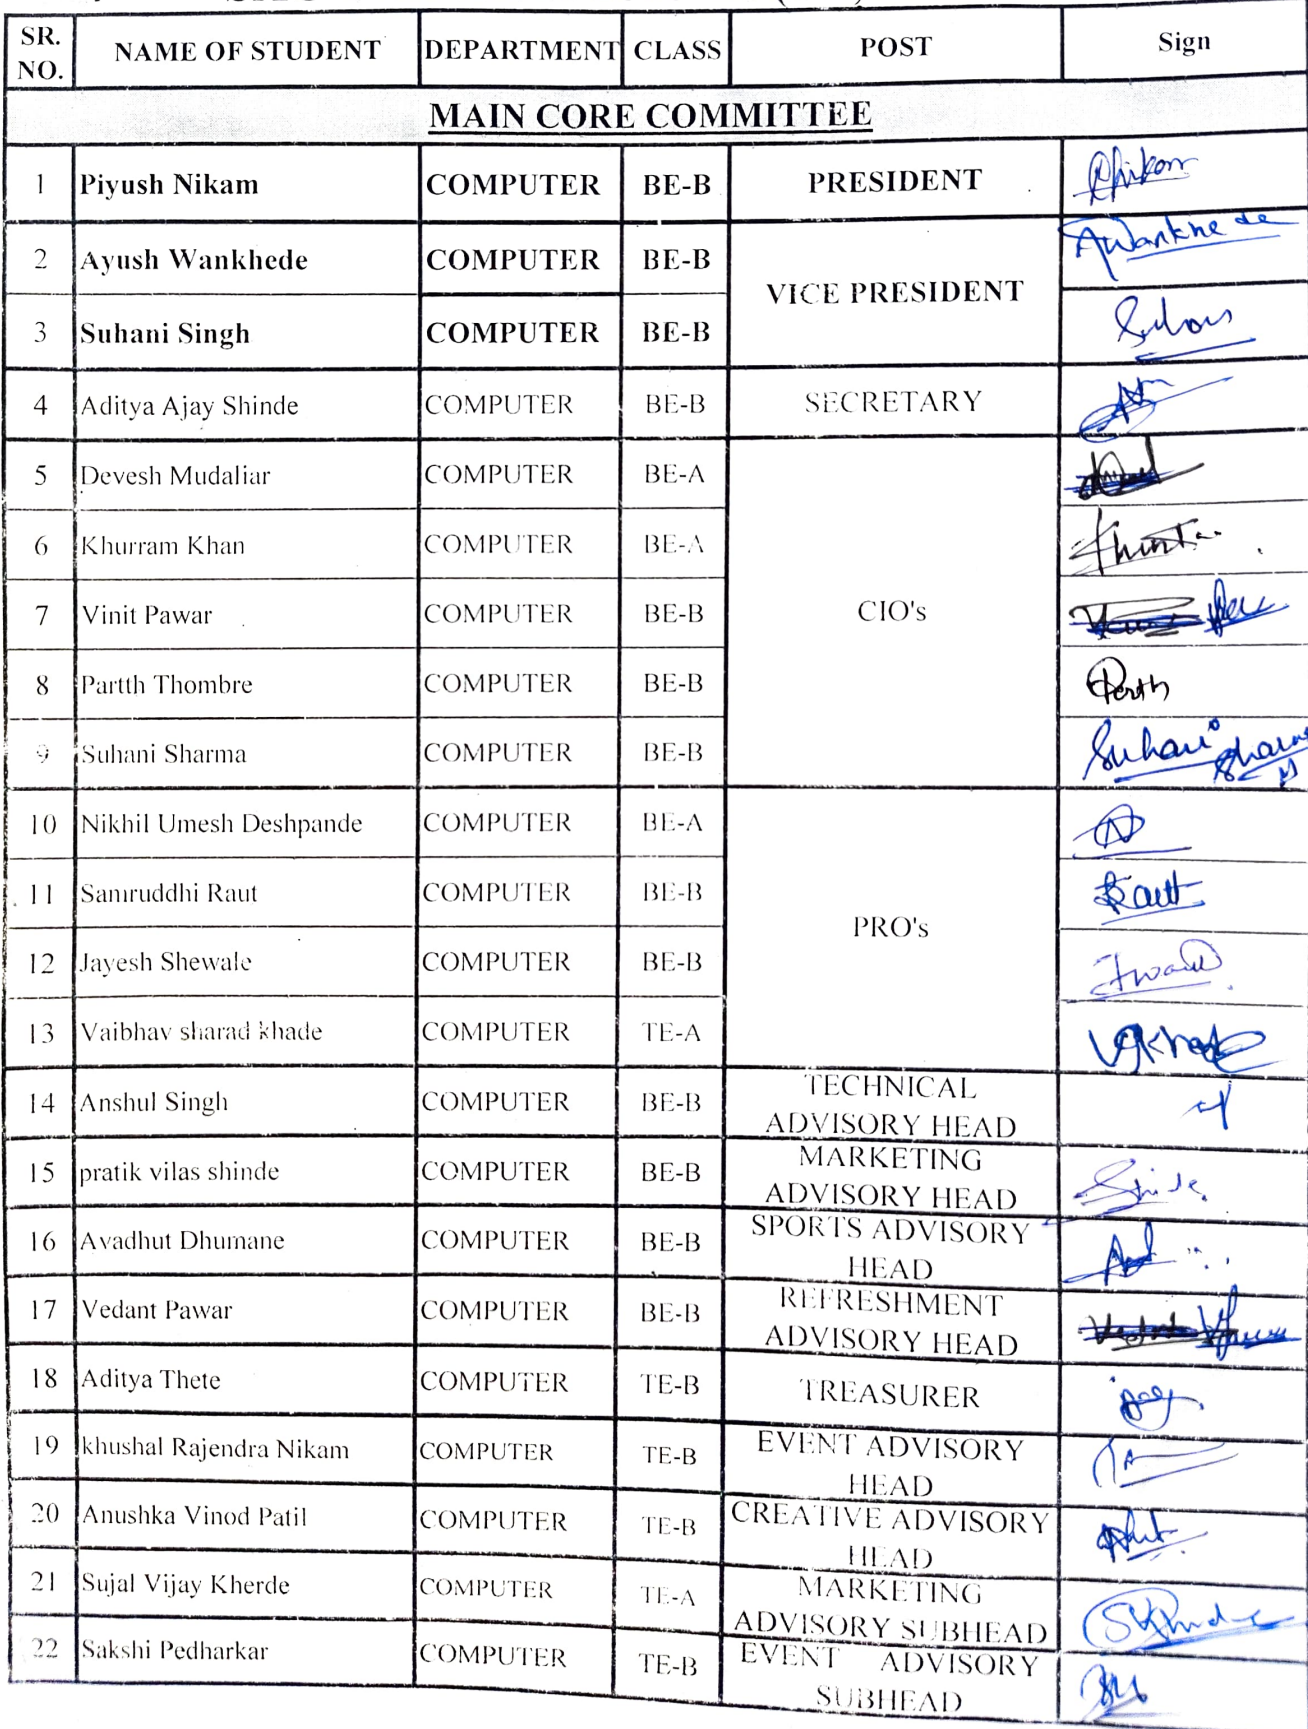 SR. NO. NAME OF STUDENT DEPARTMENT CLASS POST Sign
MAIN CORE COMMITTEE
1 Piyush Nikam COMPUTER BE-B PRESIDENT
2 Ayush Wankhede COMPUTER BE-B VICE PRESIDENT AWankhede
3 Suhani Singh COMPUTER BE-B
4 Aditya Ajay Shinde COMPUTER BE-B SECRETARY
5 Devesh Mudaliar COMPUTER BE-A CIO's
6 Khurram Khan COMPUTER BE-A
7 Vinit Pawar COMPUTER BE-B
8 Partth Thombre COMPUTER BE-B Parth
9 Suhani Sharma COMPUTER BE-B Suhani Sharma
10 Nikhil Umesh Deshpande COMPUTER BE-A PRO's
11 Samruddhi Raut COMPUTER BE-B SRaut
12 Jayesh Shewale COMPUTER BE-B
13 Vaibhav sharad khade COMPUTER TE-A
14 Anshul Singh COMPUTER BE-B TECHNICAL ADVISORY HEAD
15 pratik vilas shinde COMPUTER BE-B MARKETING ADVISORY HEAD
16 Avadhut Dhumane COMPUTER BE-B SPORTS ADVISORY HEAD
17 Vedant Pawar COMPUTER BE-B REFRESHMENT ADVISORY HEAD
18 Aditya Thete COMPUTER TE-B TREASURER
19 khushal Rajendra Nikam COMPUTER TE-B EVENT ADVISORY HEAD
20 Anushka Vinod Patil COMPUTER TE-B CREATIVE ADVISORY HEAD
21 Sujal Vijay Kherde COMPUTER TE-A MARKETING ADVISORY SUBHEAD
22 Sakshi Pedharkar COMPUTER TE-B EVENT ADVISORY SUBHEAD